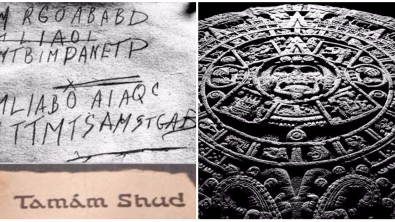 M RGOABABD
MLIAOI
NTBIMPANETP
MLIABO AIAQC
ITTMTSAMSTGAB
Tamám Shud